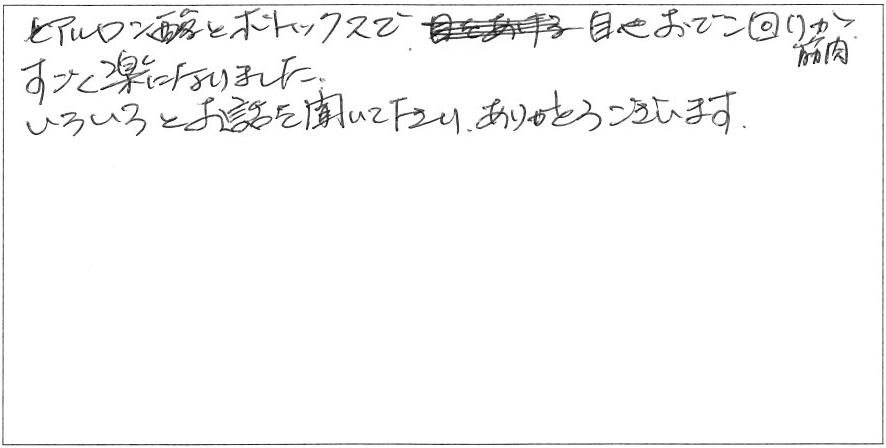 ヒアルロン酸とボトックスで 目やおでこ回りが
筋肉
すごく楽になりました。
いろいろとお話を聞いて下さり、ありがとうございます。